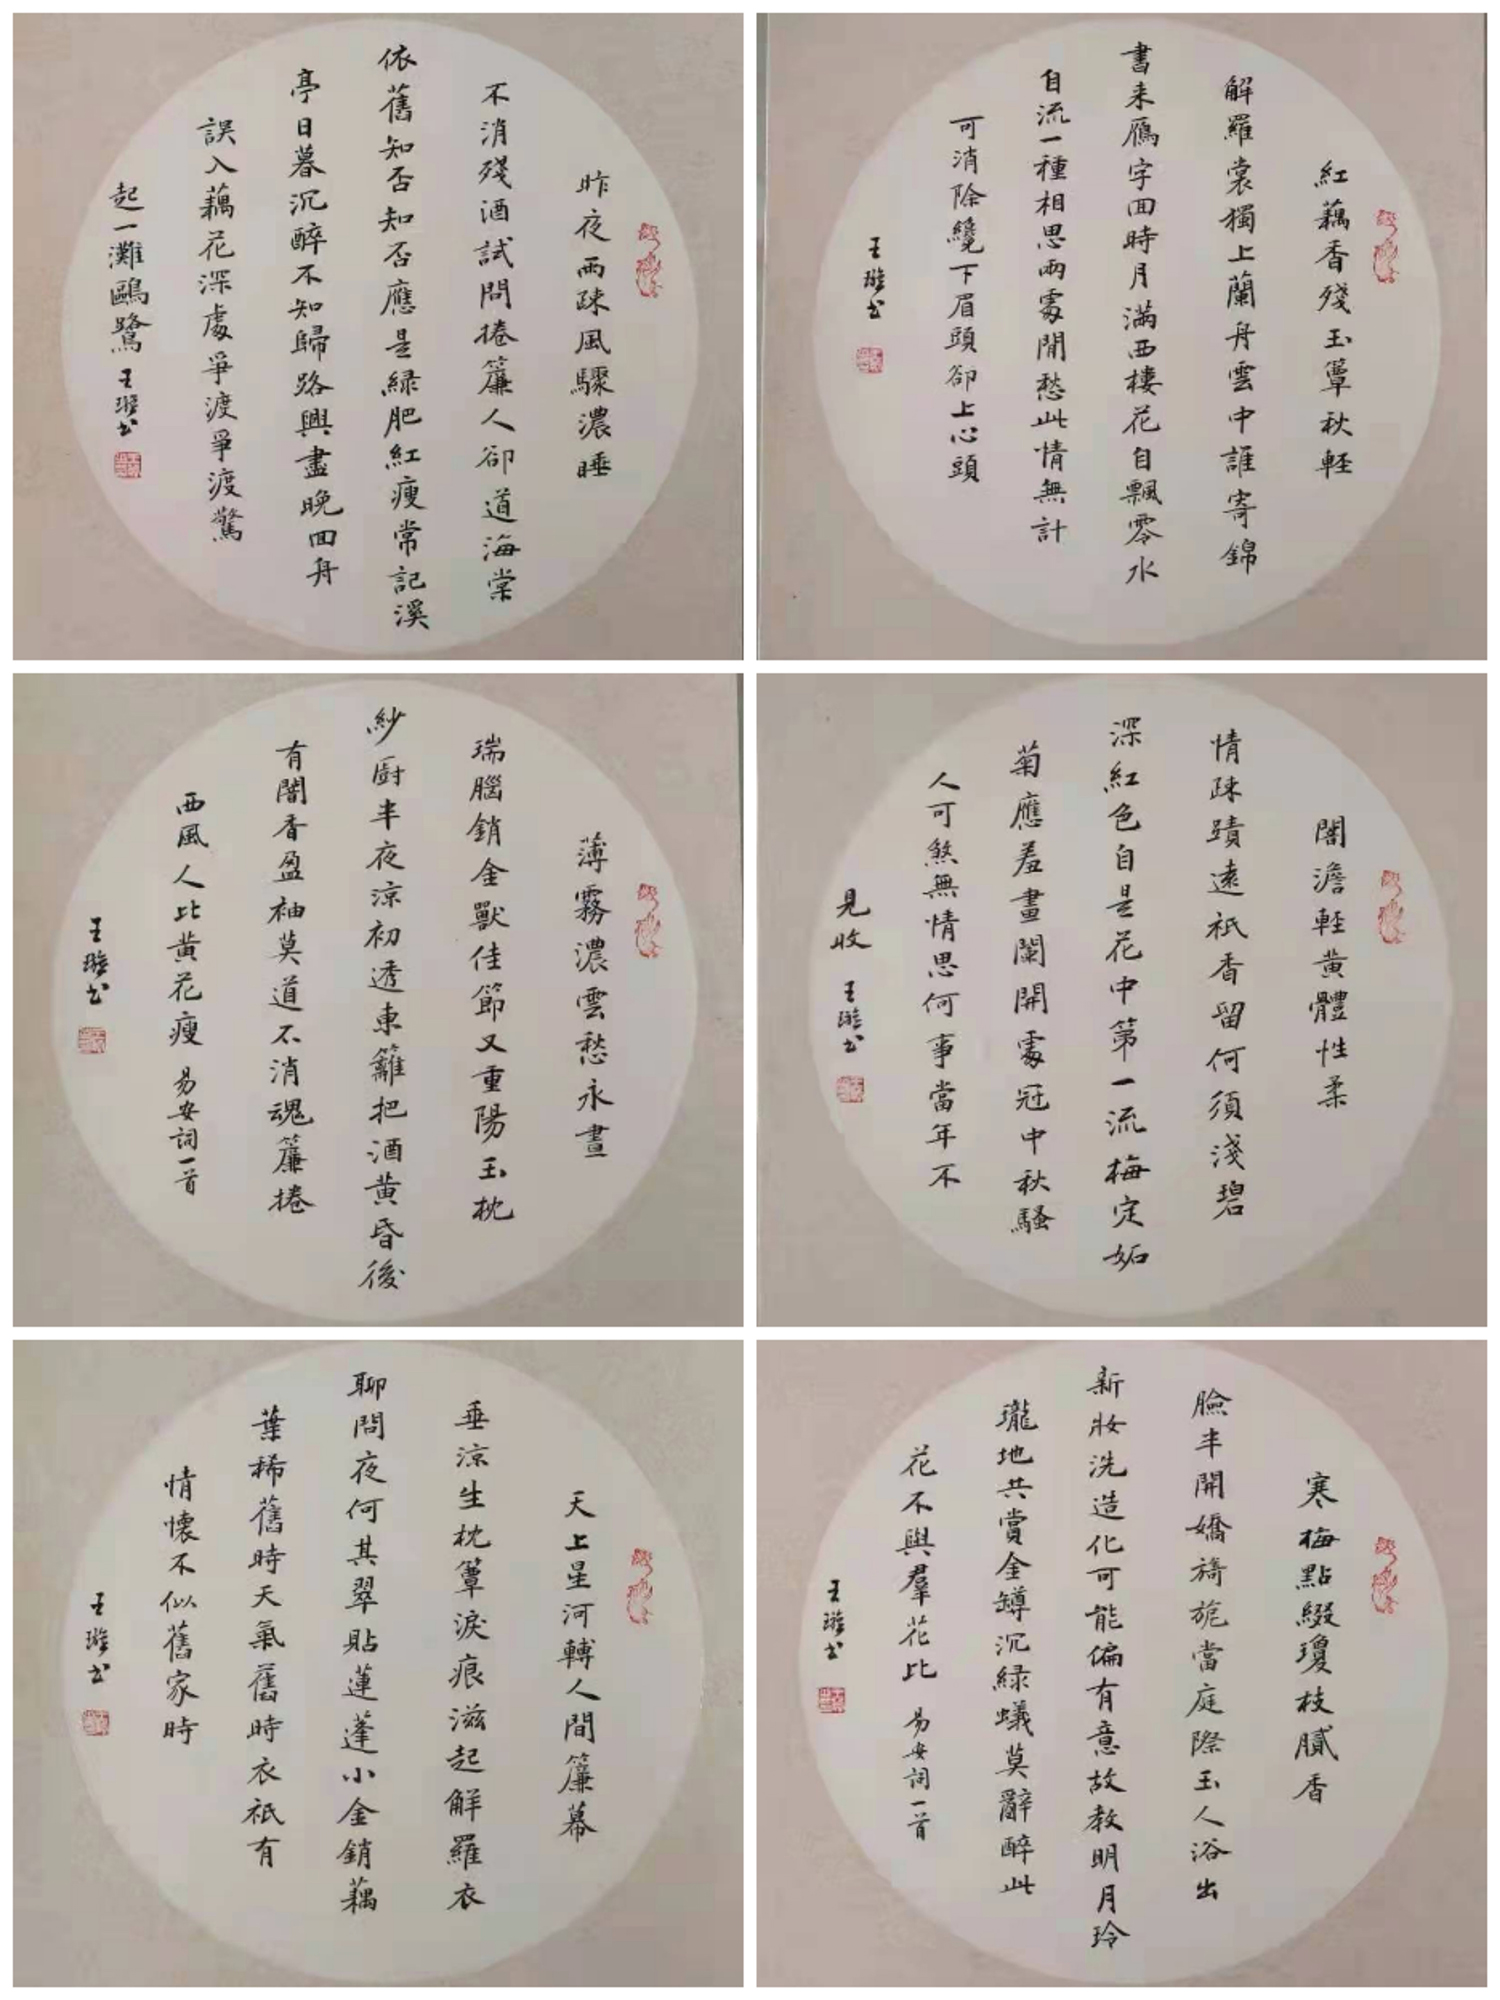 昨夜雨疎風驟濃睡
不消殘酒試問捲簾人卻道海棠
依舊知否知否應是緑肥紅瘦常記溪
亭日暮沉醉不知歸路興盡晚回舟
誤入藕花深處爭渡爭渡驚
起一灘鷗鷺 王璇書
紅藕香殘玉簟秋輕
解羅裳獨上蘭舟雲中誰寄錦
書来雁字回時月滿西樓花自飄零水
自流一種相思兩處閒愁此情無計
可消除纔下眉頭卻上心頭
王璇書
薄霧濃雲愁永晝
瑞腦銷金獸佳節又重陽玉枕
紗厨半夜涼初透東籬把酒黄昏後
有闇香盈袖莫道不消魂簾捲
西風人比黄花瘦 易安詞一首
王璇書
闇澹輕黄體性柔
情疎蹟遠祇香留何須淺碧
深紅色自是花中第一流梅定妬
菊應羞畫闌開處冠中秋騷
人可煞無情思何事當年不
見收 王璇書
天上星河轉人間簾幕
垂涼生枕簟淚痕滋起解羅衣
聊問夜何其翠貼蓮蓬小金銷藕
葉稀舊時天氣舊時衣祇有
情懷不似舊家時
王璇書
寒梅點綴瓊枝膩香
臉半開嬌旖旎當庭際玉人浴出
新妝洗造化可能偏有意故教明月玲
瓏地共賞金罇沉緑蟻莫辭醉此
花不與羣花比 易安詞一首
王璇書